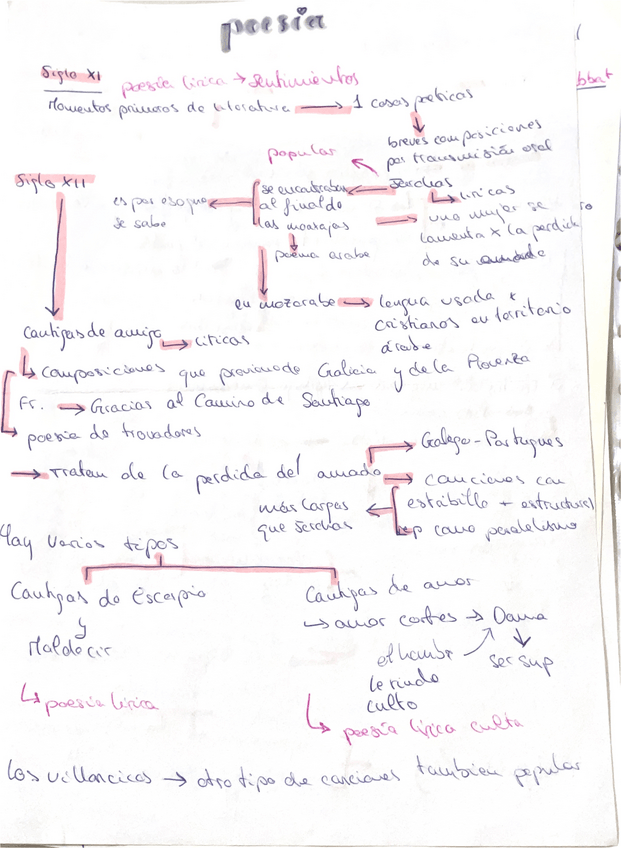 poesia
Siglo XI
poesía lírica → sentimientos
Momentos primeros de literatura → 1 cosas poéticas
breves composiciones
por transmisión oral
popular
Jarchas
Siglo XII
es por eso que
se sabe
se encontraban
al final de
las moaxajas
líricas
una mujer se
lamenta x la perdida
de su amado
poema arabe
en mozarabe → lengua usada x
cristianos en territorio
árabe
Cantigas de amigo → líricas
Composiciones que proviene de Galicia y de la Provenza
Fr. → Gracias al Camino de Santiago
poesia de trovadores
→ tratan de la perdida del amado
Galego-Portugues
canciones con
estribillo + estructura
rep como paralelismo
más largas
que Jarchas
Hay varios tipos
Cantigas de Escarnio
y
Maldecir
poesía lírica
Cantigas de amor
↳ amor cortes → Dama
ser sup
el hombre
le rinde
culto
poesía lírica culta
Los villancicos → otro tipo de canciones tambien popular